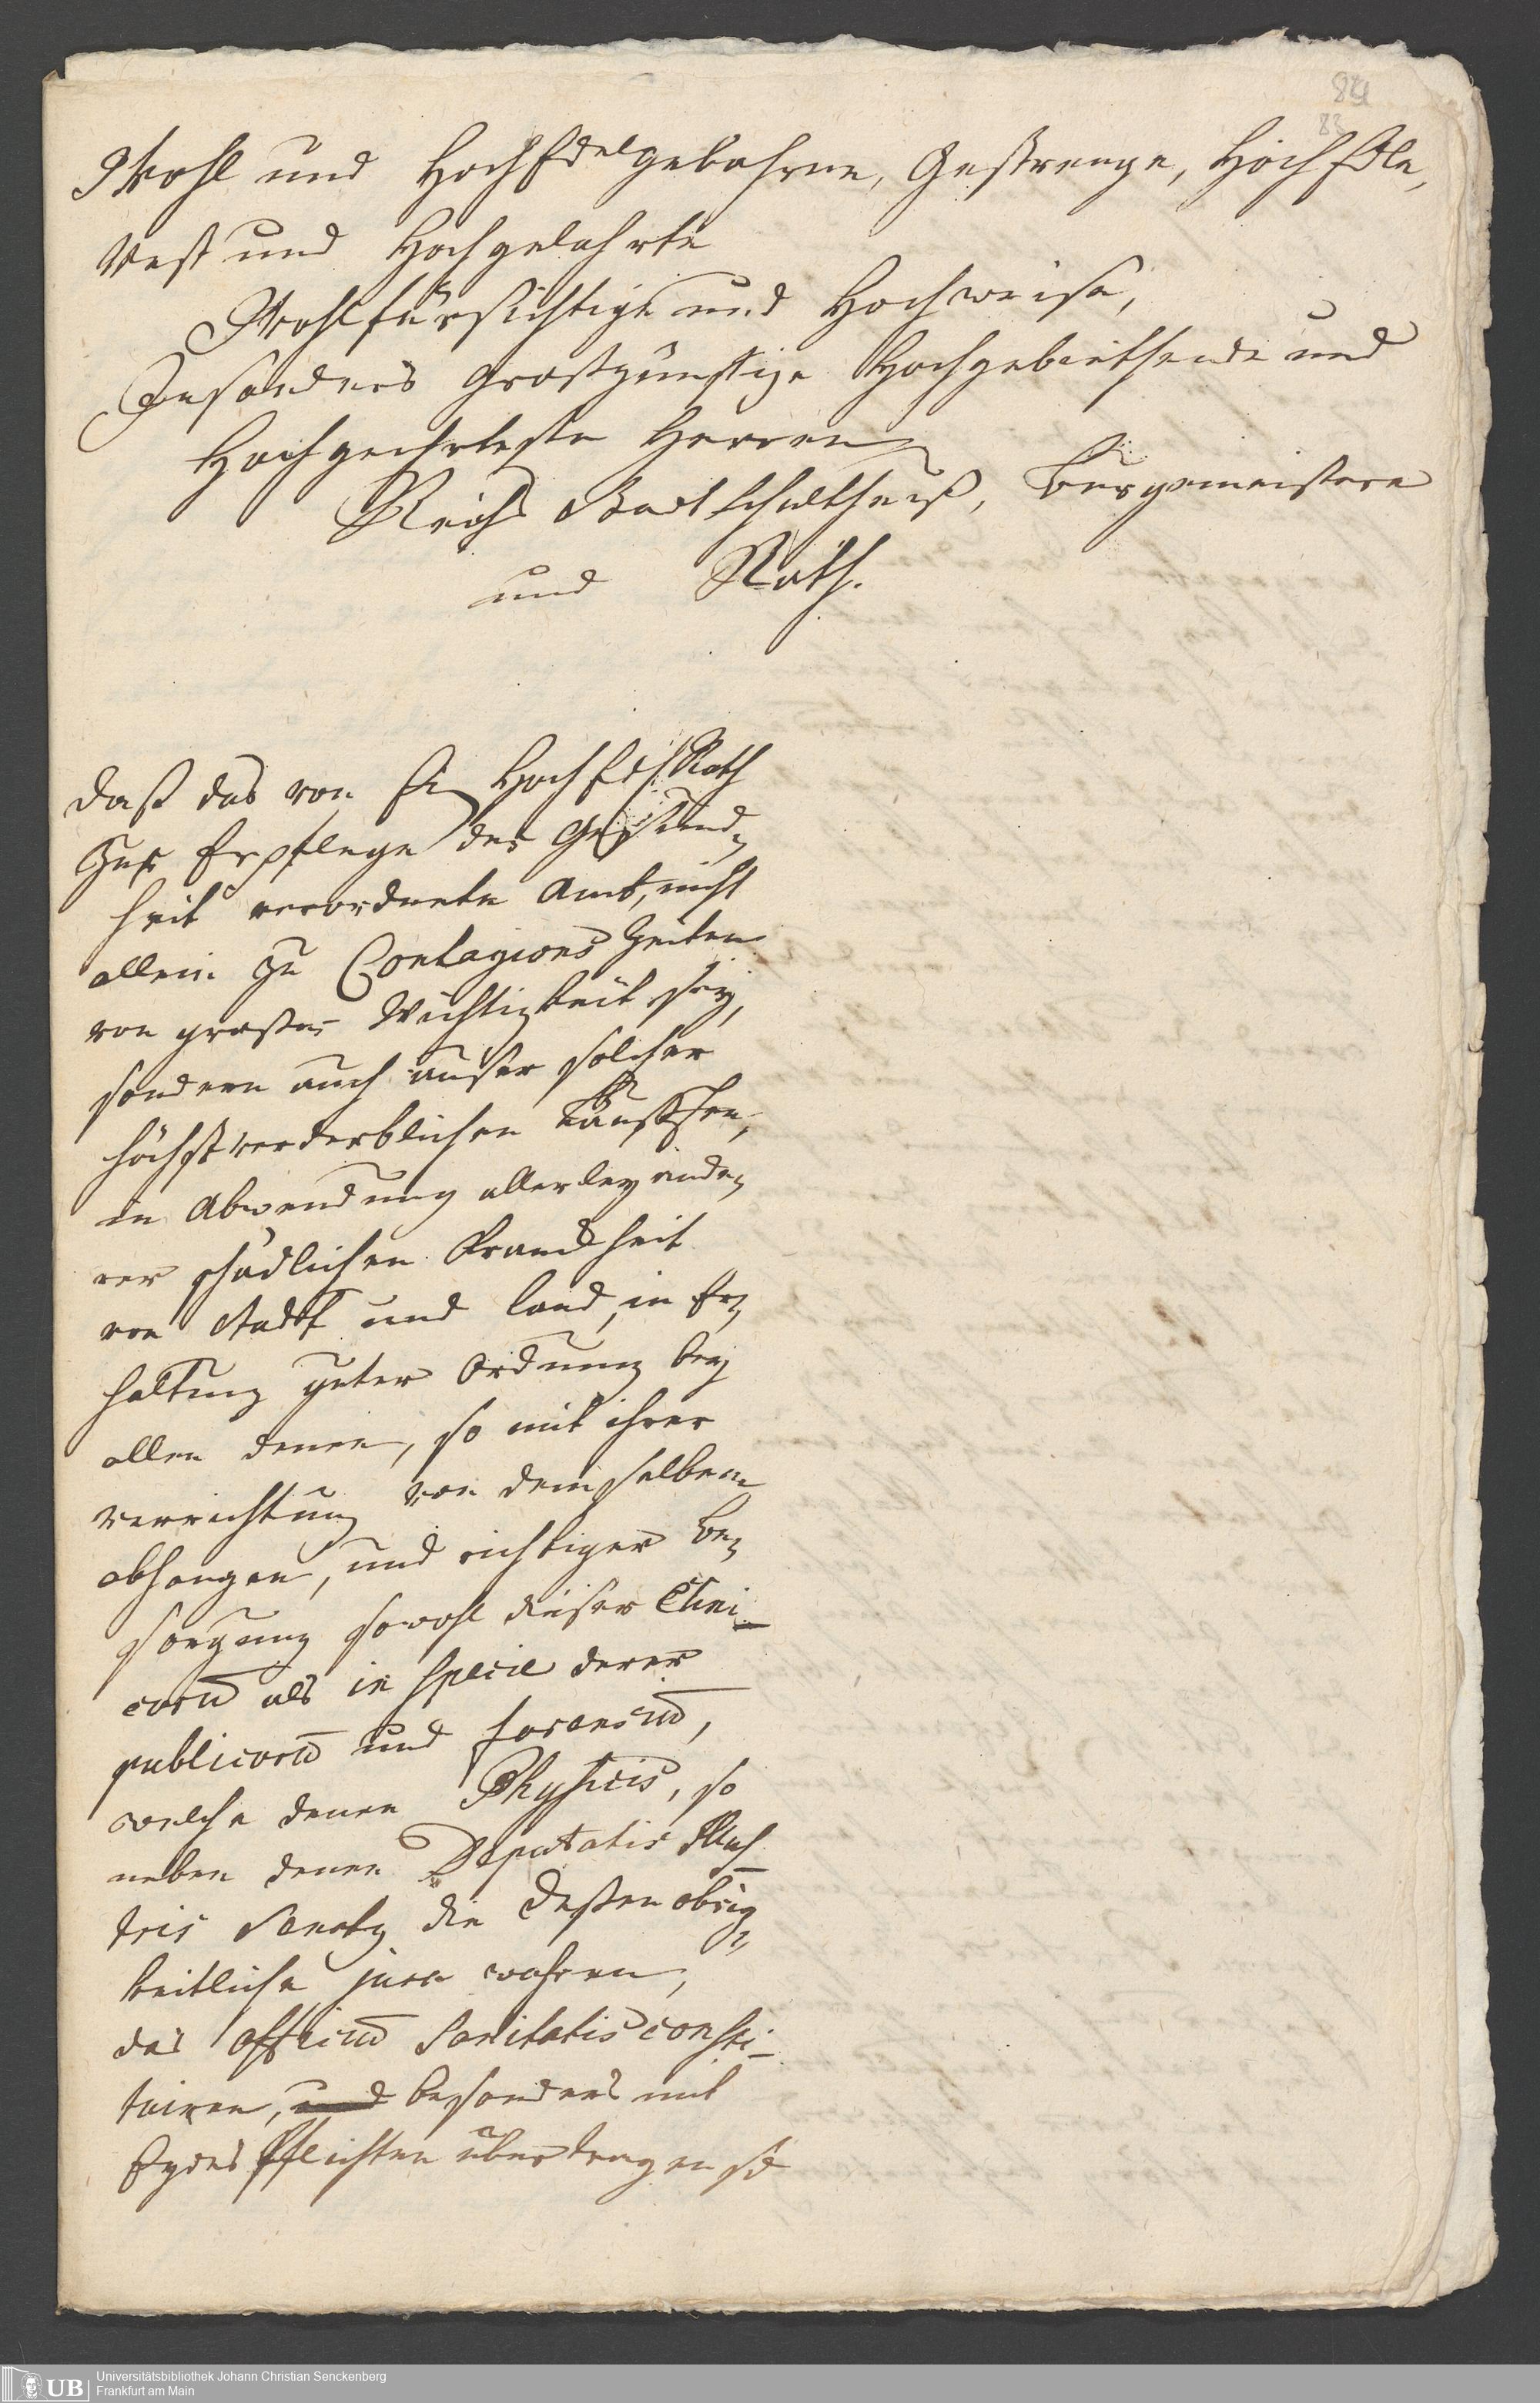 84
83
Wohl und HochEdelgebohrne, Gestrenge, HochEdle,
Vest und Hochgelahrte
Wohlfürsichtige und Hochweise,
Insonders Großgünstige Hochgebiethende und
Hochgeehrteste Herren
Reichs Stadtschultheiß, Burgemeistere
und Rath.
Daß das von E. HochEdl. Rath
zur Erpflege der Gesund„
heit verordnete Amt, nicht
allein zu Contagions Zeiten
von großer Wichtigkeit sey,
sondern auch außer solcher
höchstverderblichen
in Abwendung allerley ande„
rer schädlichen Kranckheit
von Stadt und Land, in Er„
haltung guter Ordnung bey
allen denen, so mit ihrer
verrichtung von demselben
abhangen, und richtiger Be„
sorgung sowohl dieser Clini_
corū als in specie derer
publicorū und forensiū,
welche denen Physicis, so
neben denen Deputatis Illus_
tris Senatq die deßen obrig„
keitliche jura wahren,
das officiū Sanitatis consti_
tuiren, und besonders mit
Eydes Pflichten übertragen sd
UB
Universitätsbibliothek Johann Christian Senckenberg
Frankfurt am Main